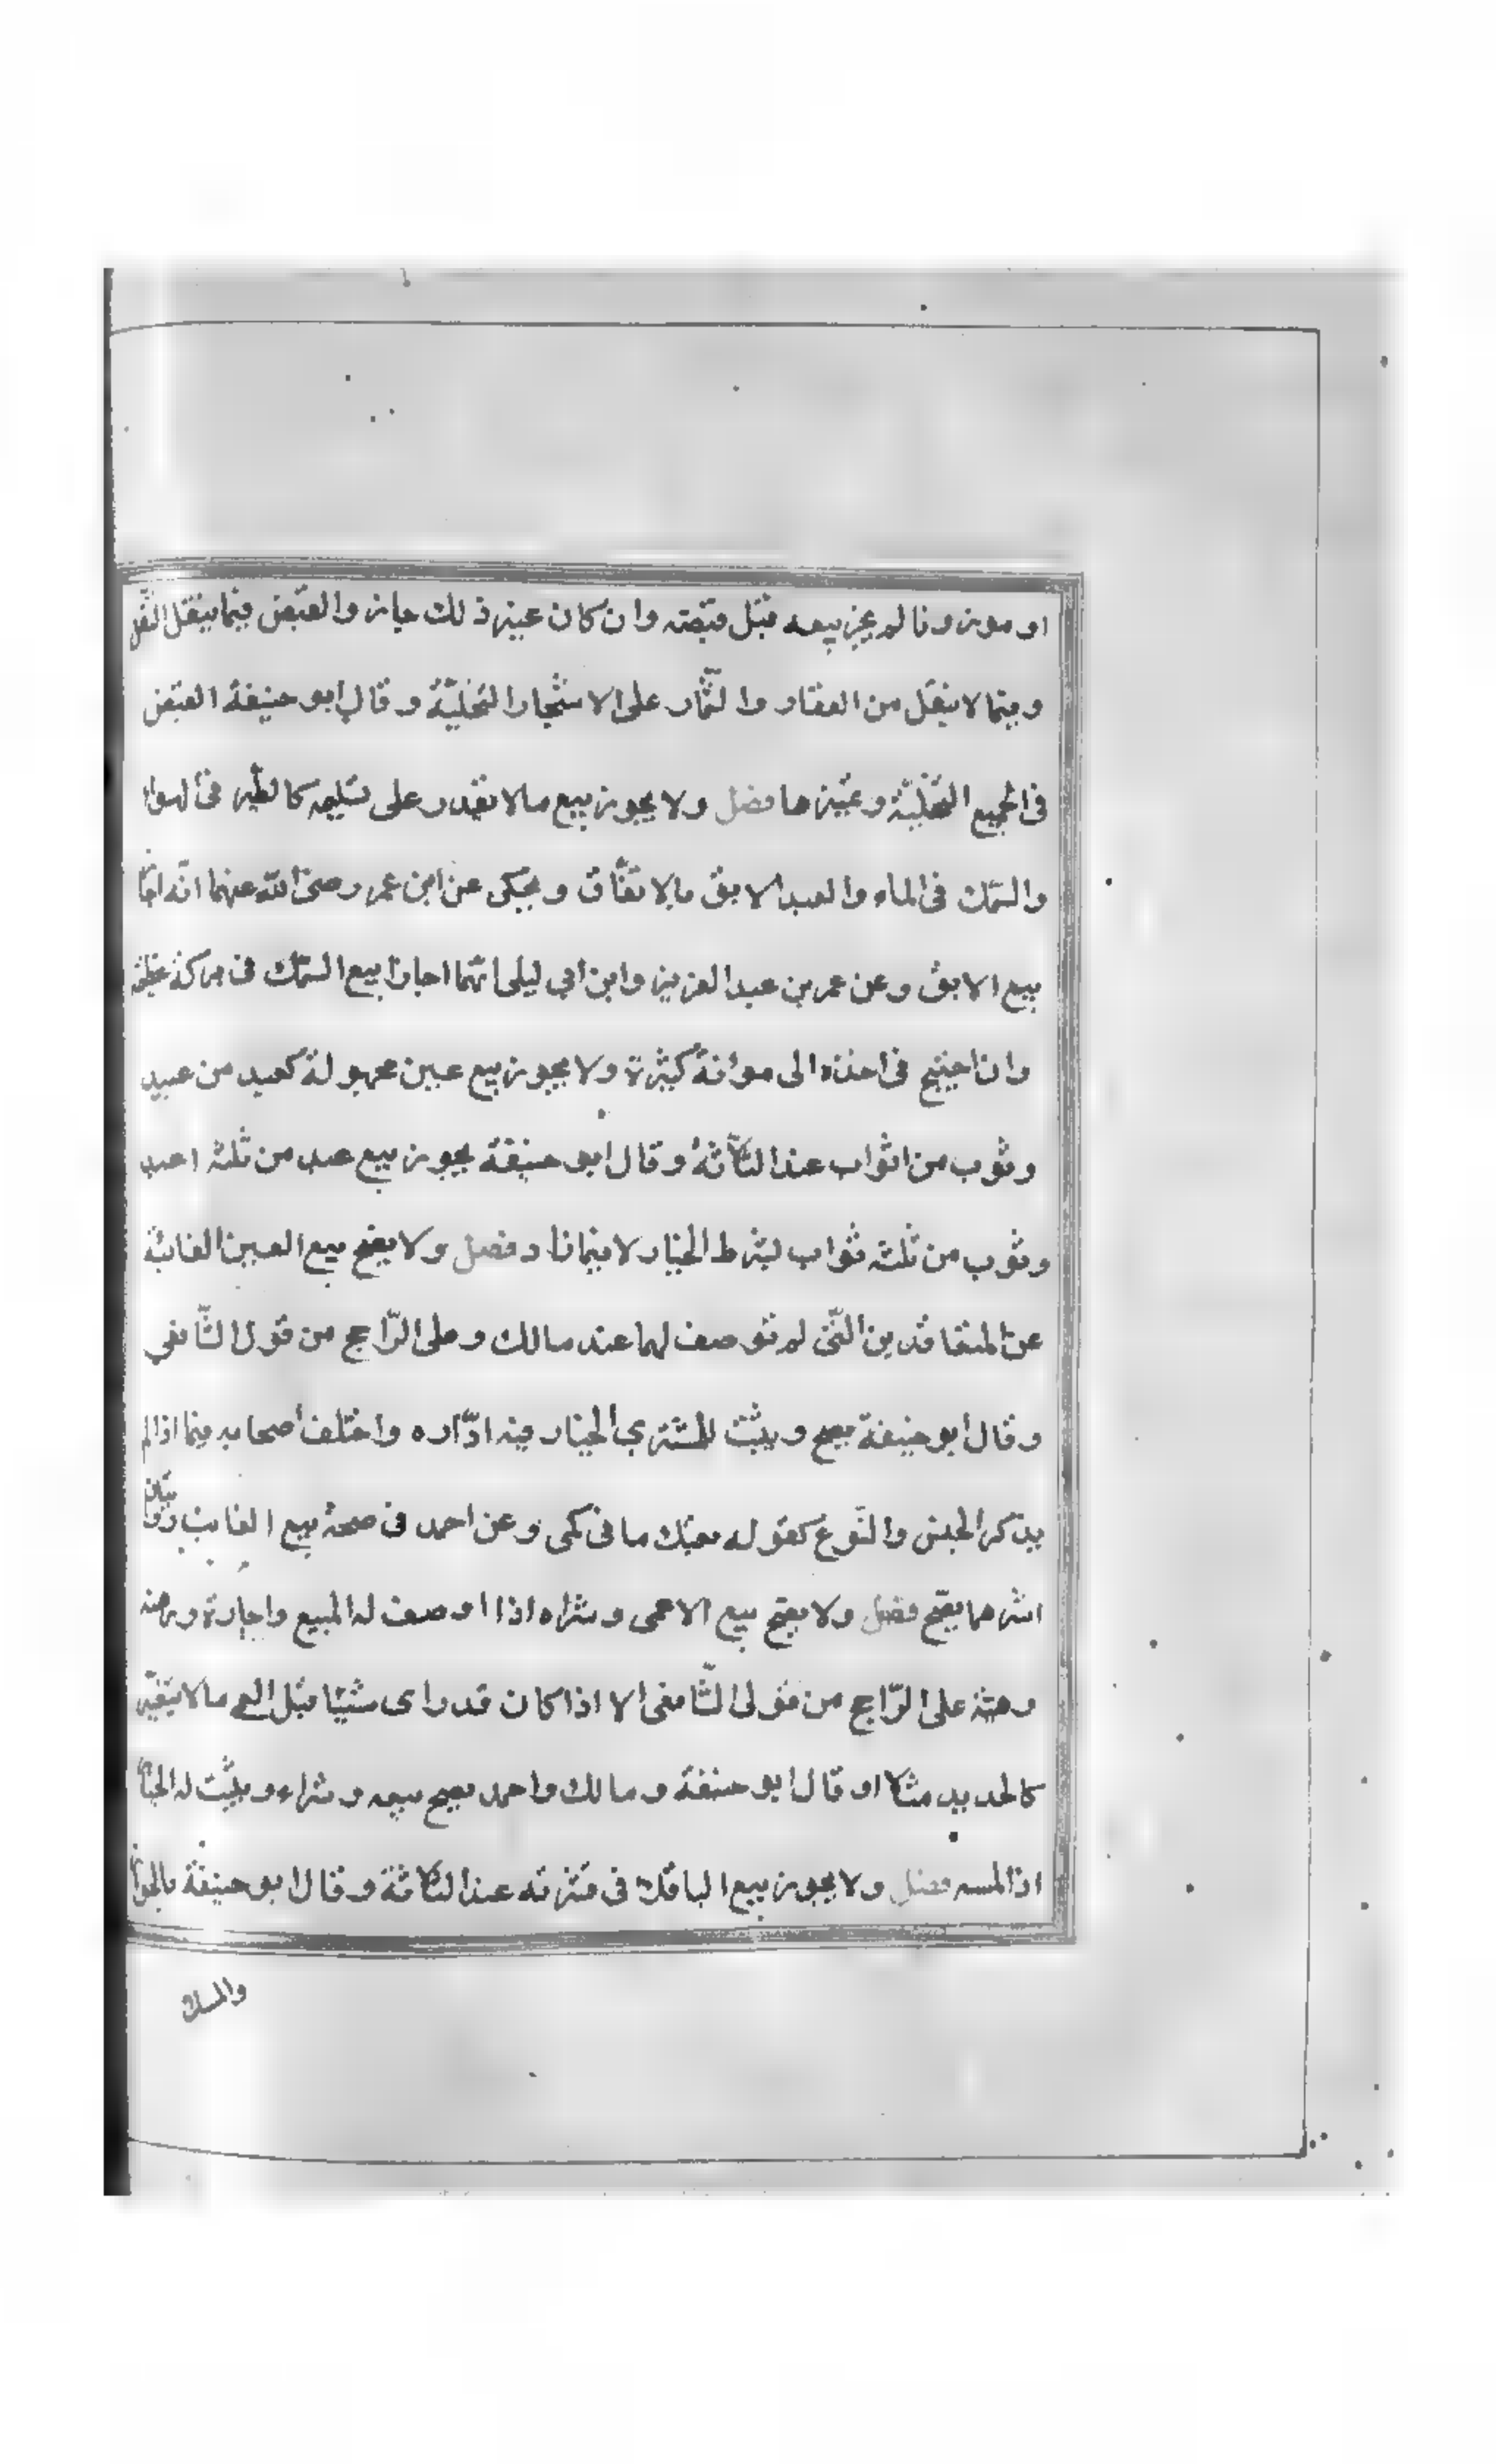 او موزونا لم يجز بيعه قبل قبضه وان كان غيره ذلك جاز والقبض فيما ينقل النقل
وفيما لا ينقل من العقار والثّمار على الاشجار التخليّة وقال ابو حنيفة القبض
فى الجميع التخليّة وغيرها فصل ولا يجوز بيع مالا يقدر على تسليمه كالطّير فى الهواء
والسّمك فى الماء والعبد الابق بالاتفّاق ويحكى عن ابن عمر رضى الله عنهما انّه اجاز
بيع الابق وعن عمر بن عبد العزيز وابن ابي ليلى انّهما اجازا بيع السّمك فى بركة عظيمة
وان احتيج فى اخذه الى موأنة كثيرة ولا يجوز بيع عين مجهولة كعبد من عبيد
وثوب من اثواب عند الثّلاثة وقال ابو حنيفة يجوز بيع عبد من ثلثه اعبد
وثوب من ثلثه ثواب بشرط الخيار لا فيما زاد فصل ولا يصّح بيع العين الغائبة
عن المتعاقدين الّتى لم توصف لهما عند مالك وعلى الرّاجح من قول الشّافعي
وقال ابو حنيفة يصح ويثبت للمشتري الخيار فيه اذا راه واختلف أصحابه فيما اذا لم
يذكر الجنس والنّوع كقوله بعتك ما فى كمى وعن احمد فى صحة بيع الغايب روايتان
اشهرهما يصّح فصل ولا يصّح بيع الاعمى وشراه اذا اوصف له المبيع واجارة ورهنه
وهبته على الرّاجح من قولى الشّافعى الا اذا كان قد راى شيئا قبل العمى مالا يتغيّر
كالحديد مثلا او قال ابو حنيفة ومالك واحمد يصح بيعه وشراء ويثبت له الخيار
اذا لمسه فصل ولا يجوز بيع الباقلا فى قشرته عند الثلاثة وقال ابو حنيفة بالجواز
والمسك